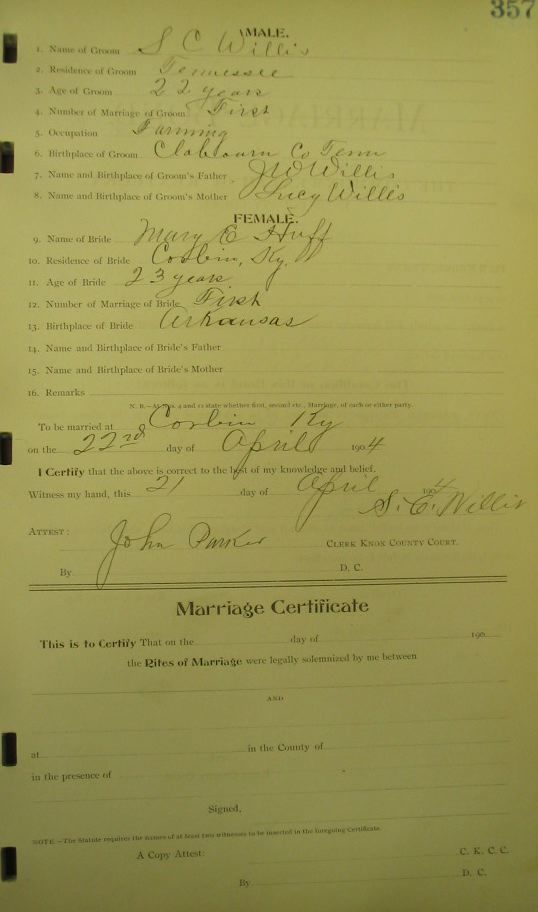 357
MALE.
1. Name of Groom S C Willis
2. Residence of Groom Tennessee
3. Age of Groom 22 years
4. Number of Marriage of Groom First
5. Occupation Farming
6. Birthplace of Groom Clabourn Co Tenn
7. Name and Birthplace of Groom's Father J W Willis
8. Name and Birthplace of Groom's Mother Lucy Willis
FEMALE.
9. Name of Bride Mary E Huff
10. Residence of Bride Corbin, Ky.
11. Age of Bride 23 years
12. Number of Marriage of Bride First
13. Birthplace of Bride Arkansas
14. Name and Birthplace of Bride's Father
15. Name and Birthplace of Bride's Mother
16. Remarks
N. B.—At Nos. 4 and 12 state whether first, second etc., Marriage, of each or either party.
To be married at Corbin Ky
on the 22nd day of April 1904
I Certify that the above is correct to the best of my knowledge and belief.
Witness my hand, this 21 day of April 1904
S. C. Willis
ATTEST: John Parker CLERK KNOX COUNTY COURT.
By D. C.
Marriage Certificate
This is to Certify That on the day of 190
the Rites of Marriage were legally solemnized by me between
AND
at in the County of
in the presence of
Signed,
NOTE.—The Statute requires the names of at least two witnesses to be inserted in the foregoing Certificate.
A Copy Attest: C. K. C. C.
By D. C.